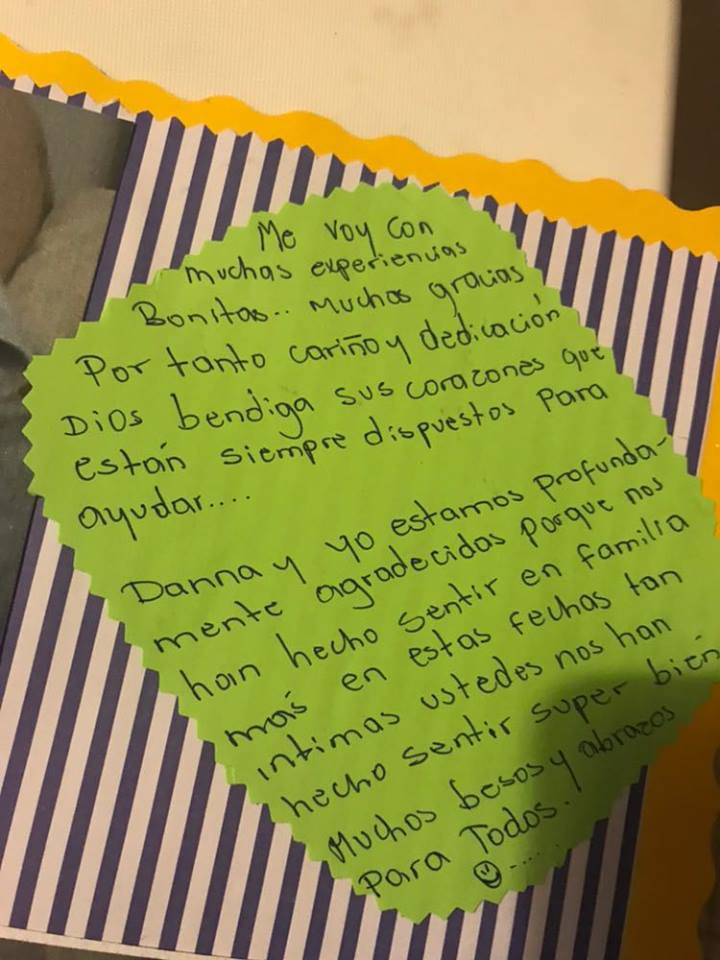 Me voy con
muchas experiencias
Bonitas.. Muchas gracias
Por tanto cariño y dedicación
Dios bendiga sus corazones que
están siempre dispuestos para
ayudar....
Danna y yo estamos profunda-
mente agradecidas porque nos
han hecho sentir en familia
más en estas fechas tan
intimas ustedes nos han
hecho sentir super bién
Muchos besos y abrazos
Para Todos.